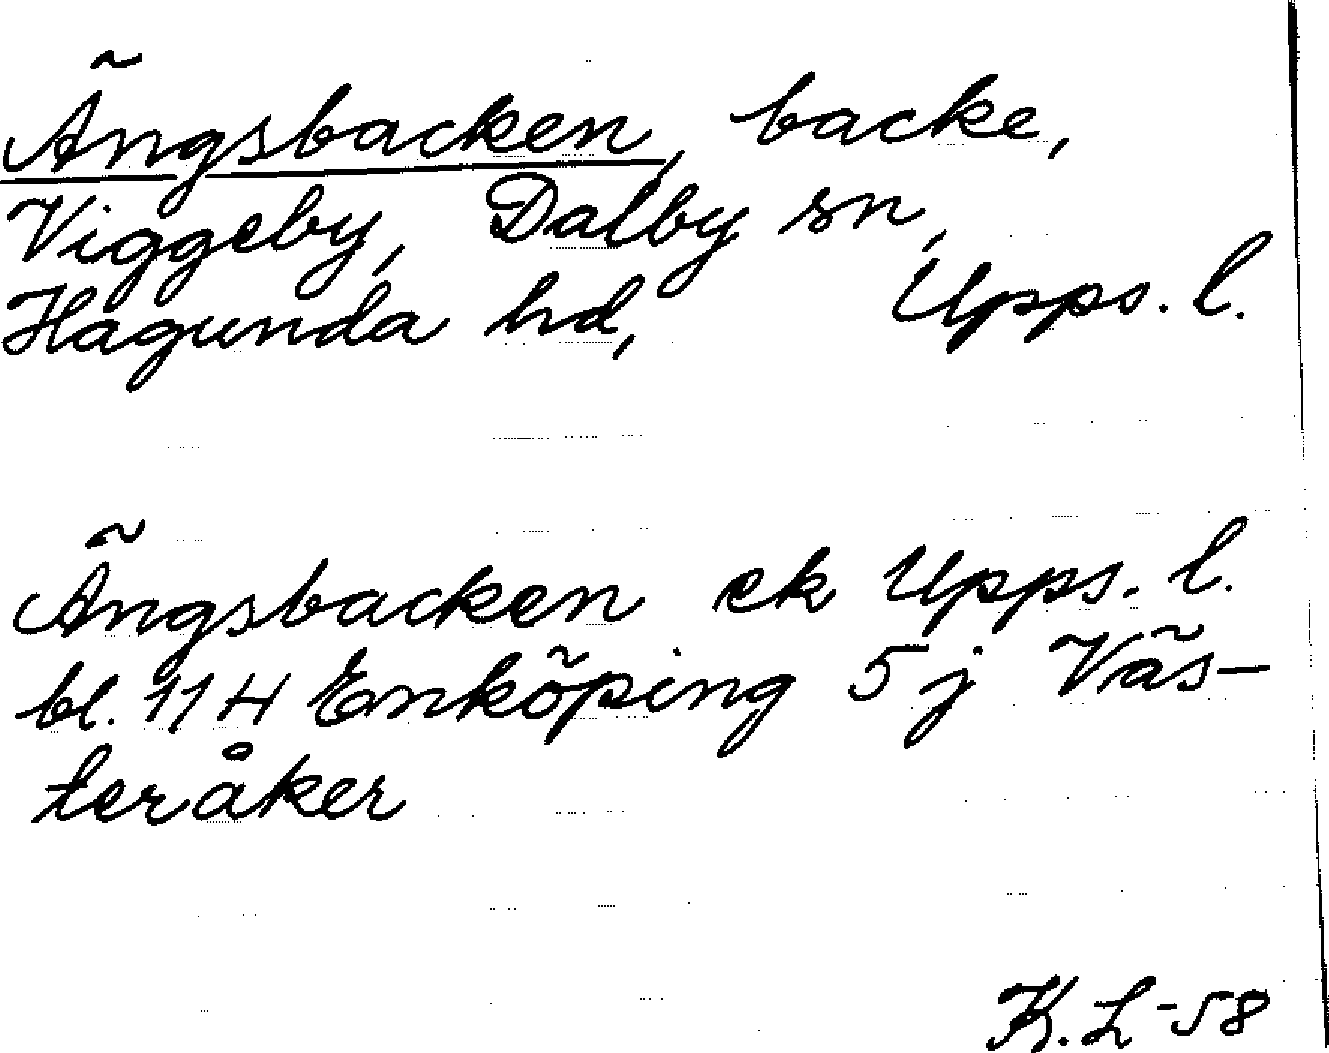 Ängsbacken, backe,
Viggeby, Dalby sn,
Hagunda hd, Upps. l.
Ängsbacken ek Upps. l.
bl. 11 H Enköping 5 j Väs-
teråker
K. L -58